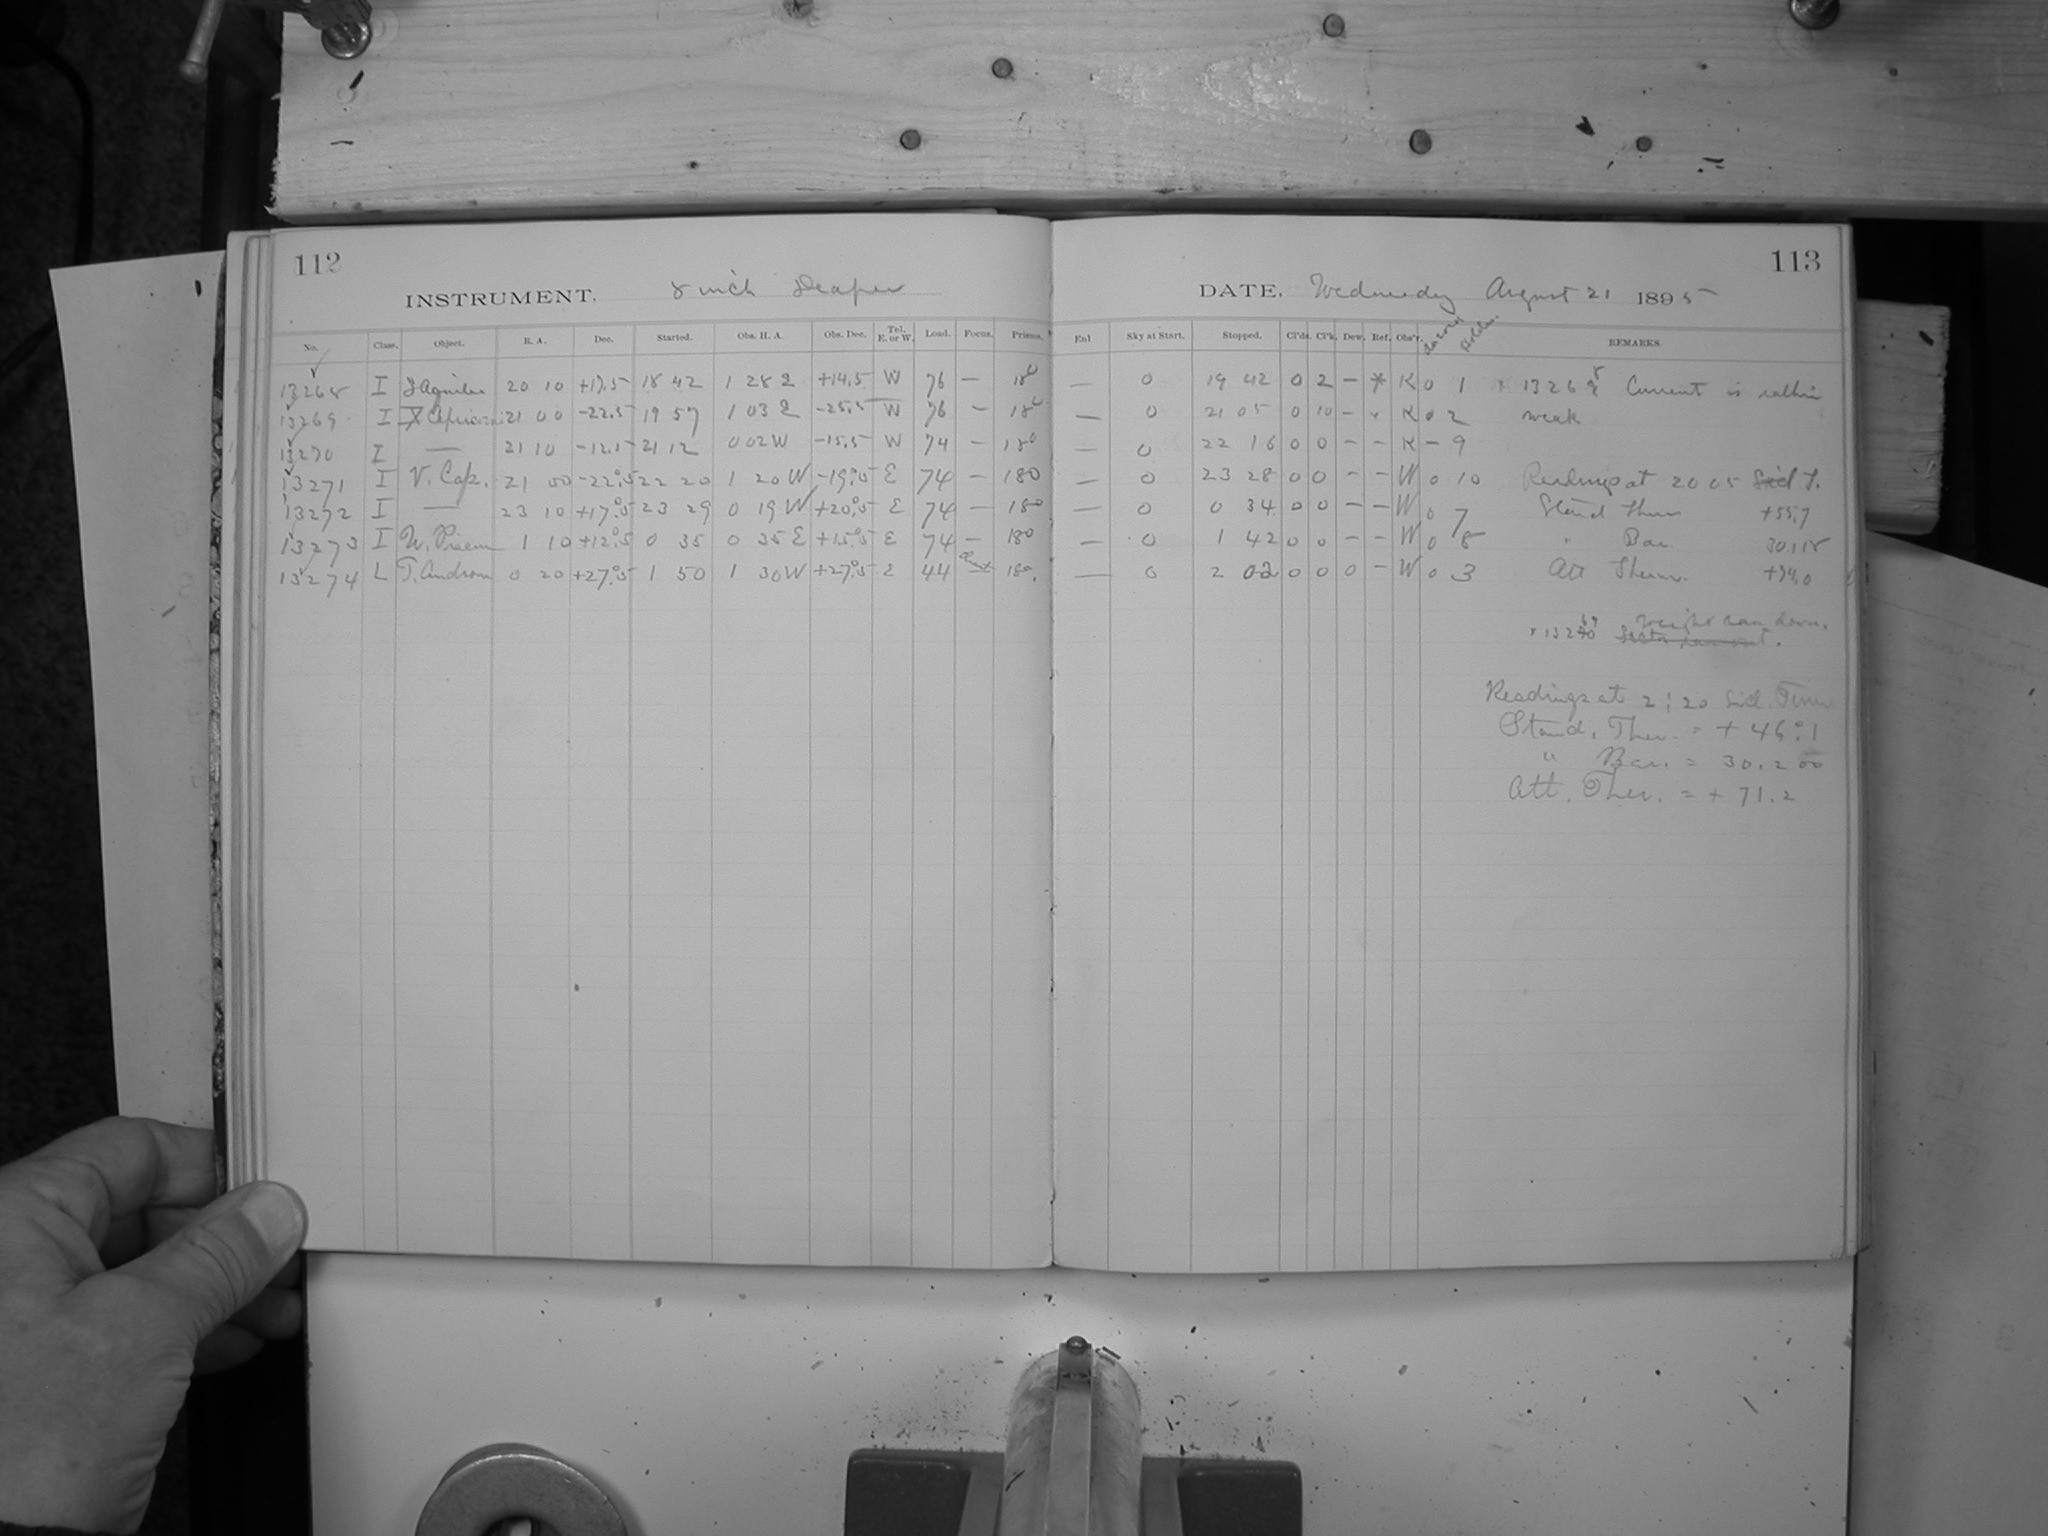 112
INSTRUMENT. 8 inch Draper
No. Class. Object. R. A. Dec. Started. Obs. H. A. Obs. Dec. Tel. E. or W. Load. Focus. Prisms.
13268 I Aquilae 20 10 +17.5 18 42 1 28 E +14.5 W 76 — 180
13269 I 21 00 -22.5 19 57 1 03 E -25.5 W 76 — 180
13270 I — 21 10 -12.5 21 12 0 02 W -15.5 W 74 — 180
13271 I V. Cap. 21 00 -22°.5 22 20 1 20 W -19°.5 E 74 — 180
13272 I — 23 10 +17°.5 23 29 0 19 W +20°.5 E 74 — 180
13273 I W. Piscium 1 10 +12°.5 0 35 0 35 E +15°.5 E 74 — 180
13274 L T. Androm 0 20 +27°.5 1 50 1 30 W +27°.5 E 44 180
113
DATE. Wednesday August 21 1895
Enl Sky at Start. Stopped. Cl'ds. Cl'k. Dew. Ref. Obs'r. Holder. REMARKS.
— 0 19 42 0 2 — * K 0 1 x 13268 Current is rather
— 0 21 05 0 10 — K 0 2 weak
— 0 22 16 0 0 — — K — 9
— 0 23 28 0 0 — — W 0 10 Readings at 20 05 Sid T.
— 0 0 34 0 0 — — W 0 7 Stand Ther +55.7
— 0 1 42 0 0 — — W 0 8 " Bar 30.118
— 0 2 02 0 0 0 — W 0 3 Att Therm. +74.0
Weight ran down.
x 13269
Readings at 2:20 Sid. Time
Stand. Ther. = + 46°.1
" Bar. = 30.200
Att. Ther. = + 71.2